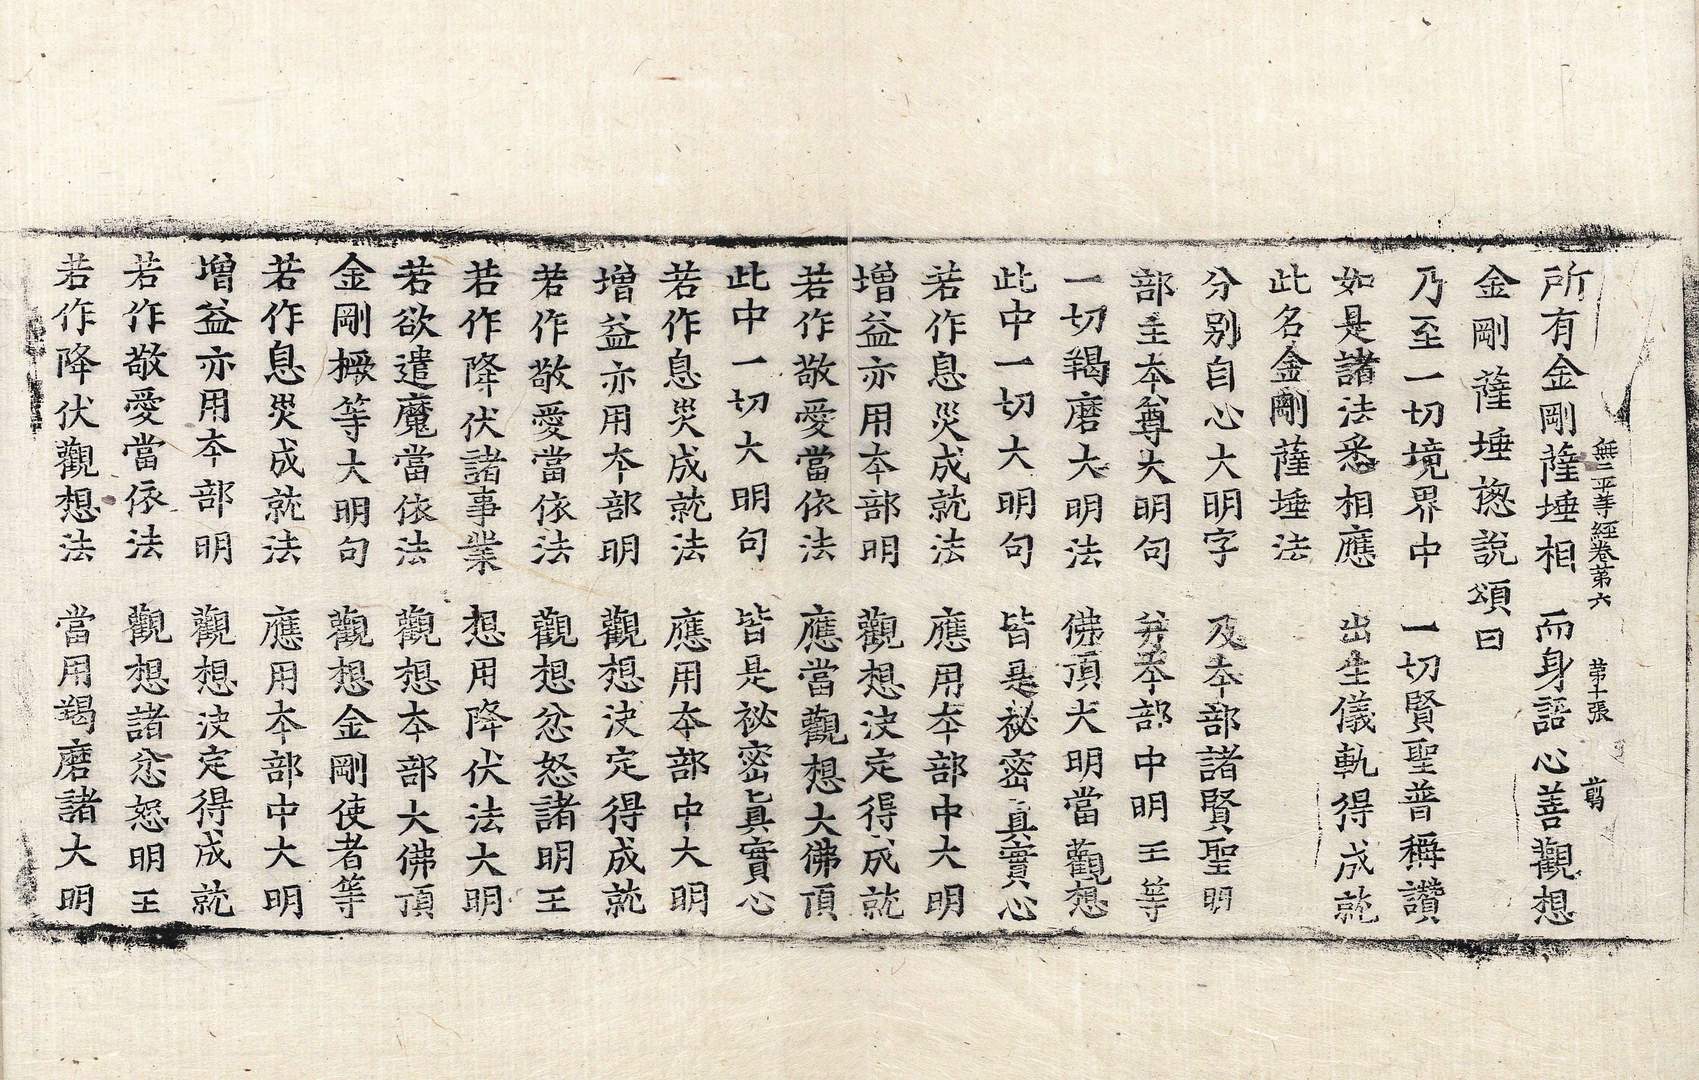 無二平等經卷第六　第十張　翦
所有金剛薩埵相　而身語心善觀想
金剛薩埵揔說頌曰
乃至一切境界中　一切賢聖普稱讚
如是諸法悉相應　出生儀軌得成就
此名金剛薩埵法
分別自心大明字　及本部諸賢聖明
部主本尊大明句　并本部中明王等
一切羯磨大明法　佛頂大明當觀想
此中一切大明句　皆是祕密真實心
若作息災成就法　應用本部中大明
增益亦用本部明　觀想決定得成就
若作敬愛當依法　應當觀想大佛頂
此中一切大明句　皆是祕密真實心
若作息災成就法　應用本部中大明
增益亦用本部明　觀想決定得成就
若作敬愛當依法　觀想忿怒諸明王
若作降伏諸事業　想用降伏法大明
若欲遣魔當依法　觀想本部大佛頂
金剛橛等大明句　觀想金剛使者等
若作息災成就法　應用本部中大明
增益亦用本部明　觀想決定得成就
若作敬愛當依法　觀想諸忿怒明王
若作降伏觀想法　當用羯磨諸大明